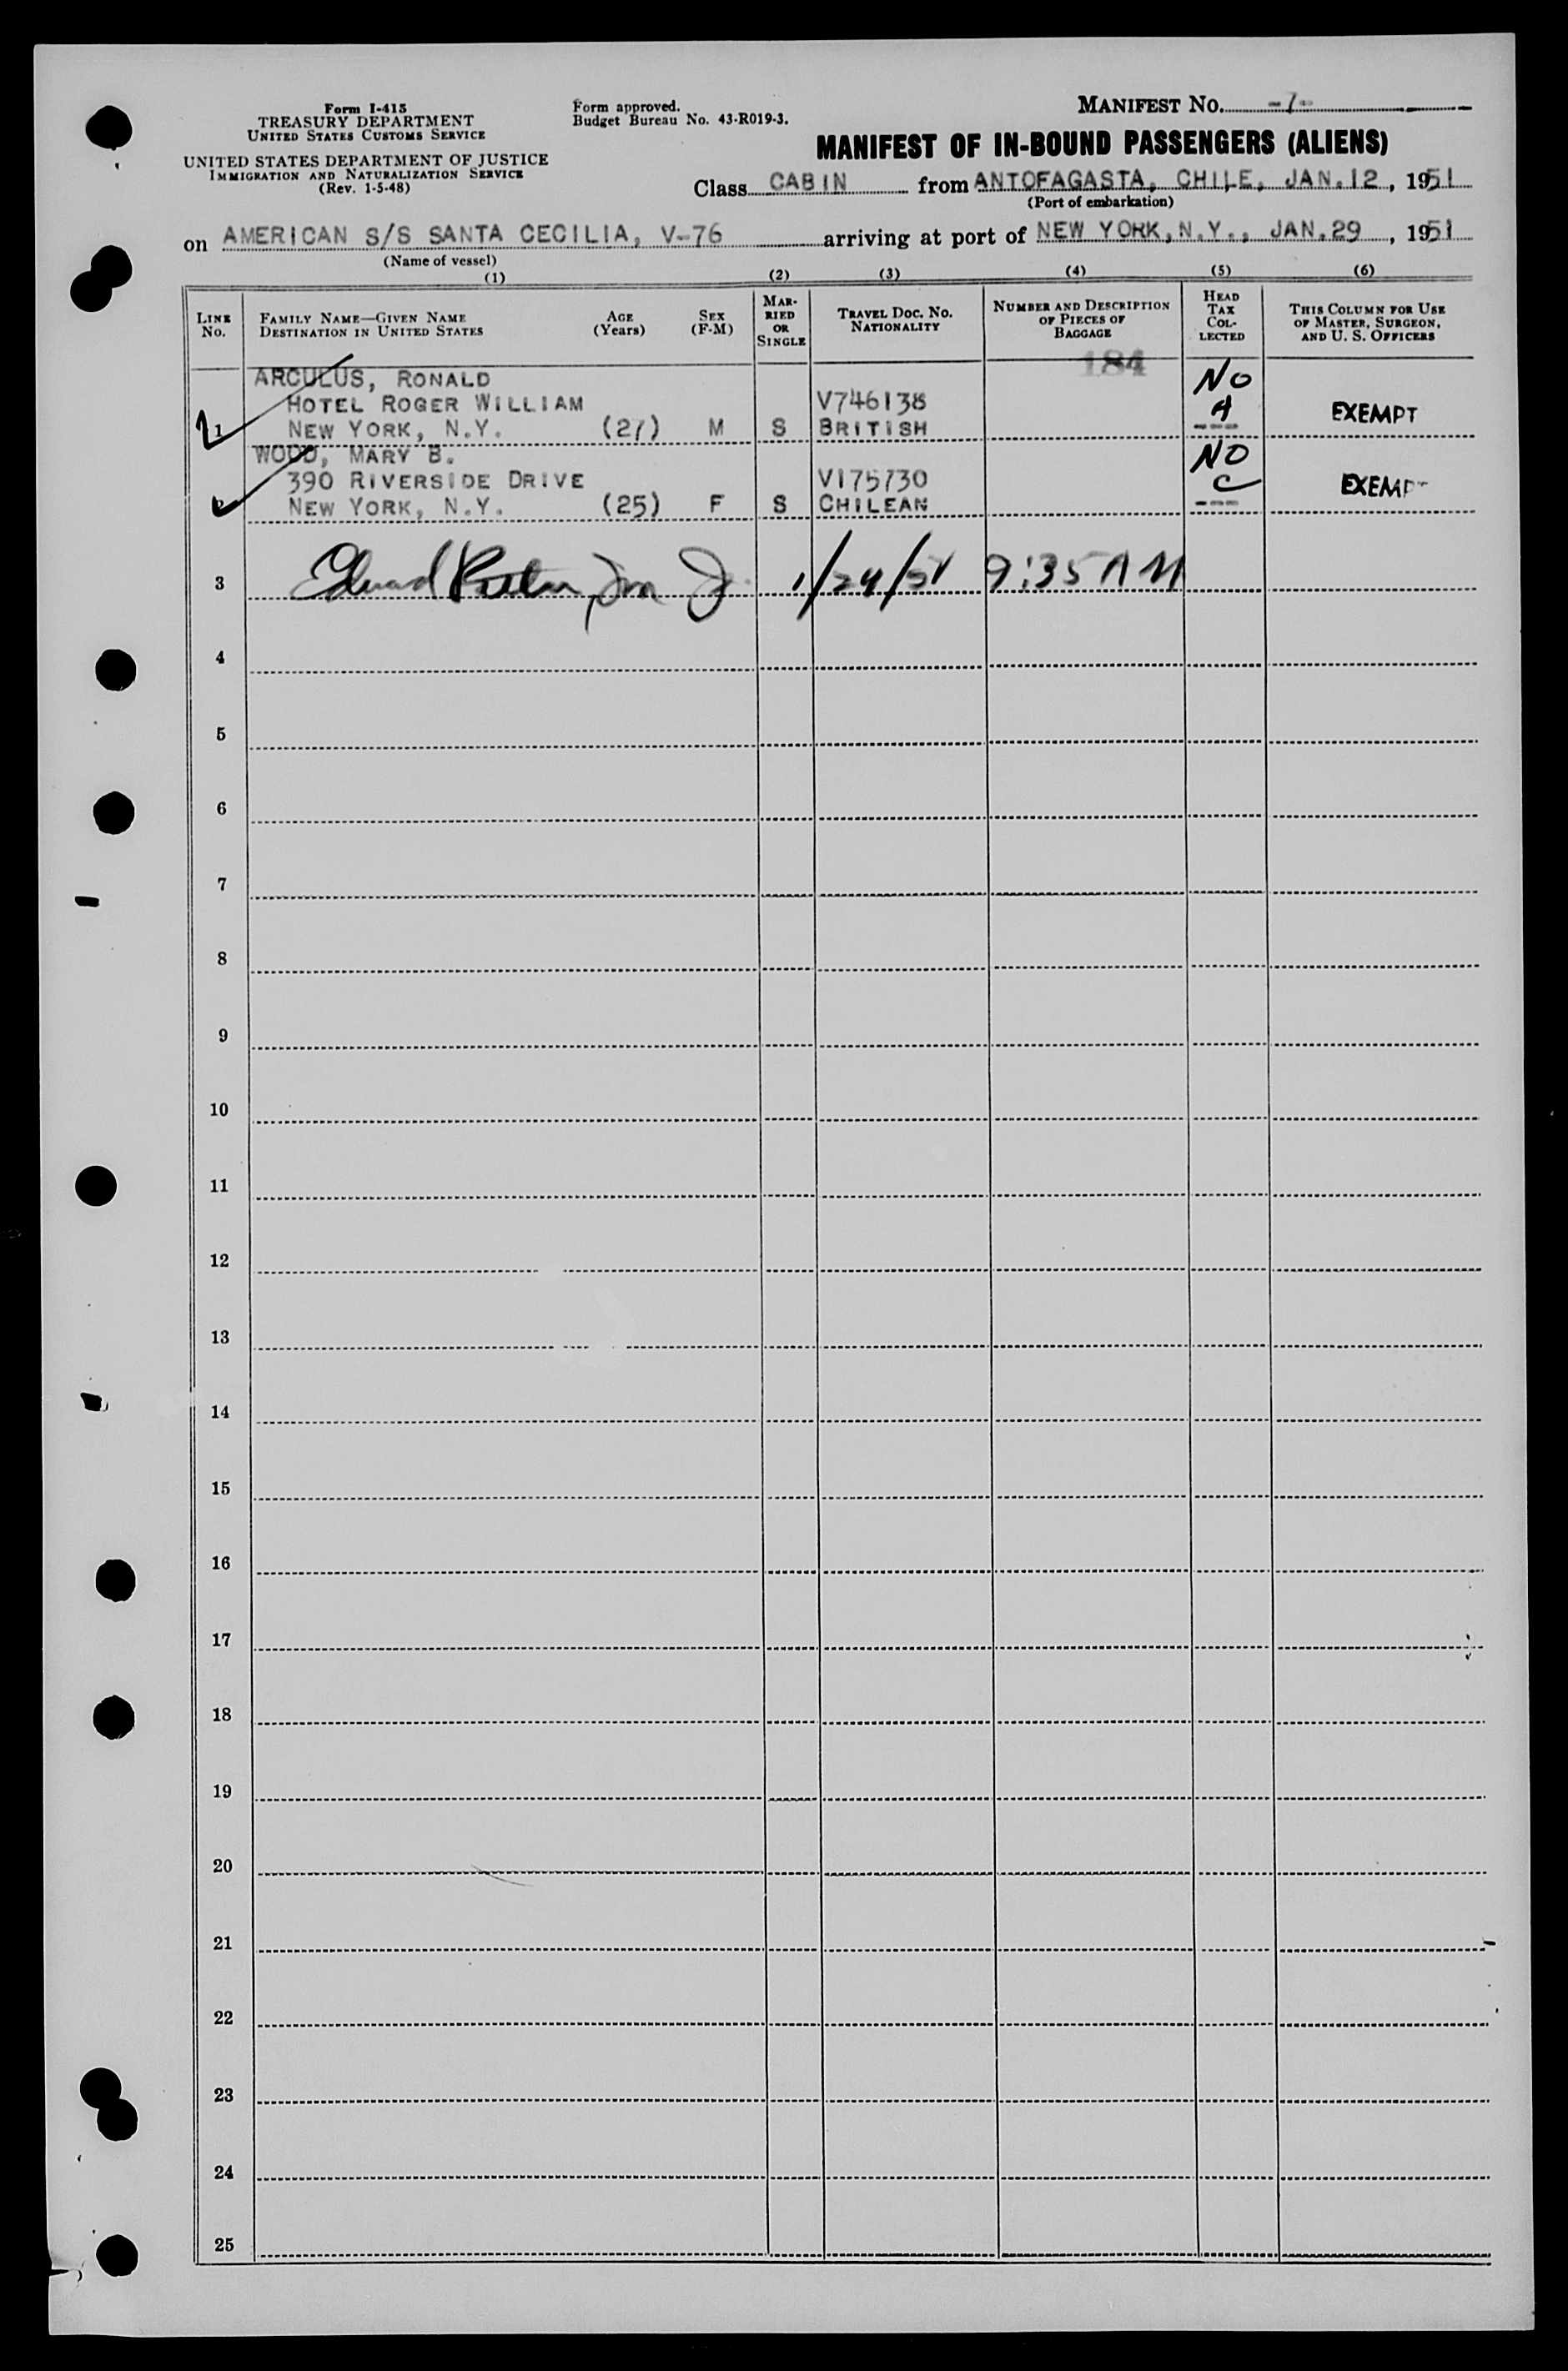 Form I-415
TREASURY DEPARTMENT
UNITED STATES CUSTOMS SERVICE
UNITED STATES DEPARTMENT OF JUSTICE
IMMIGRATION AND NATURALIZATION SERVICE
(Rev. 1-5-48)
Form approved.
Budget Bureau No. 43-R019-3.
MANIFEST No. -7-
MANIFEST OF IN-BOUND PASSENGERS (ALIENS)
Class CABIN from ANTOFAGASTA, CHILE, JAN.12, 1951
(Port of embarkation)
on AMERICAN S/S SANTA CECILIA, V-76 arriving at port of NEW YORK, N.Y., JAN.29, 1951
(Name of vessel)
(1) (2) (3) (4) (5) (6)
LINE No. FAMILY NAME—GIVEN NAME DESTINATION IN UNITED STATES AGE (Years) SEX (F-M) MARRIED OR SINGLE TRAVEL DOC. No. NATIONALITY NUMBER AND DESCRIPTION OF PIECES OF BAGGAGE HEAD TAX COLLECTED THIS COLUMN FOR USE OF MASTER, SURGEON, AND U. S. OFFICERS
184
ARCULUS, RONALD NO
HOTEL ROGER WILLIAM V746138 A EXEMPT
1 NEW YORK, N.Y. (27) M S BRITISH ---
WOOD, MARY B. NO
390 RIVERSIDE DRIVE V175730 C EXEMPT
2 NEW YORK, N.Y. (25) F S CHILEAN ---
3 Edward 9:35 AM
4
5
6
7
8
9
10
11
12
13
14
15
16
17
18
19
20
21
22
23
24
25